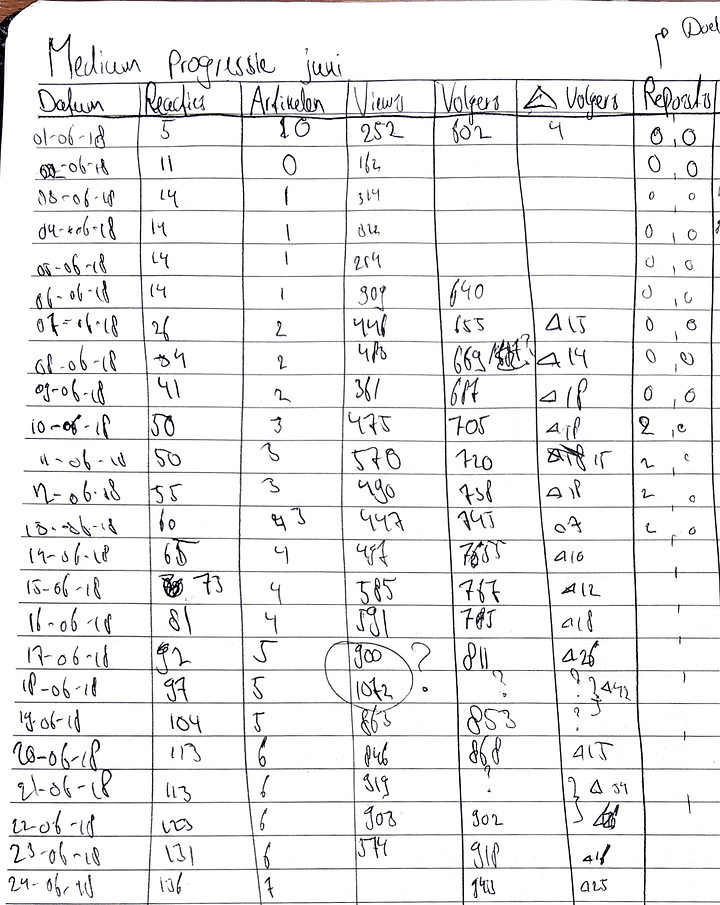 Doel
Medium Progressie juni
Datum Reacties Artikelen Views Volgers Δ Volgers Reposts
01-06-18 5 10 252 602 4 0,0
02-06-18 11 0 162 0,0
03-06-18 14 1 314 0 0
04-06-18 14 1 0,0
05-06-18 14 1 254 0,0
06-06-18 14 1 309 640 0,0
07-06-18 26 2 446 655 Δ15 0 0
08-06-18 34 2 483 669 Δ14 0,0
09-06-18 41 2 361 687 Δ18 0,0
10-06-18 50 3 475 705 Δ18 2,0
11-06-18 50 3 570 720 15 2,0
12-06-18 55 3 490 738 Δ18 2 0
13-06-18 60 3 447 745 Δ7 2,0
14-06-18 65 4 497 755 Δ10
15-06-18 73 4 585 767 Δ12
16-06-18 81 4 591 785 Δ18
17-06-18 92 5 900 ? 811 Δ26
18-06-18 97 5 1072 ? ? Δ42
19-06-18 104 5 863 853 ?
20-06-18 113 6 846 868 Δ15
21-06-18 113 6 919 ? Δ34
22-06-18 123 6 903 902
23-06-18 131 6 574 918 Δ16
24-06-18 136 7 943 Δ25